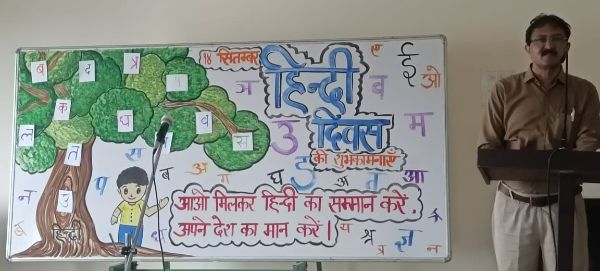 १४ सितम्बर
हिन्दी
दिवस
की शुभकामनाएँ
आओ मिलकर हिन्दी का सम्मान करें,
अपने देश का मान करें।
हिन्दी
ब द त्र
क प
घ व
ल त स
उ
ज ब ई ओ
उ म
ए अ ग घ ड ज त आ
न प ब
य श्र त्र ज्ञ न